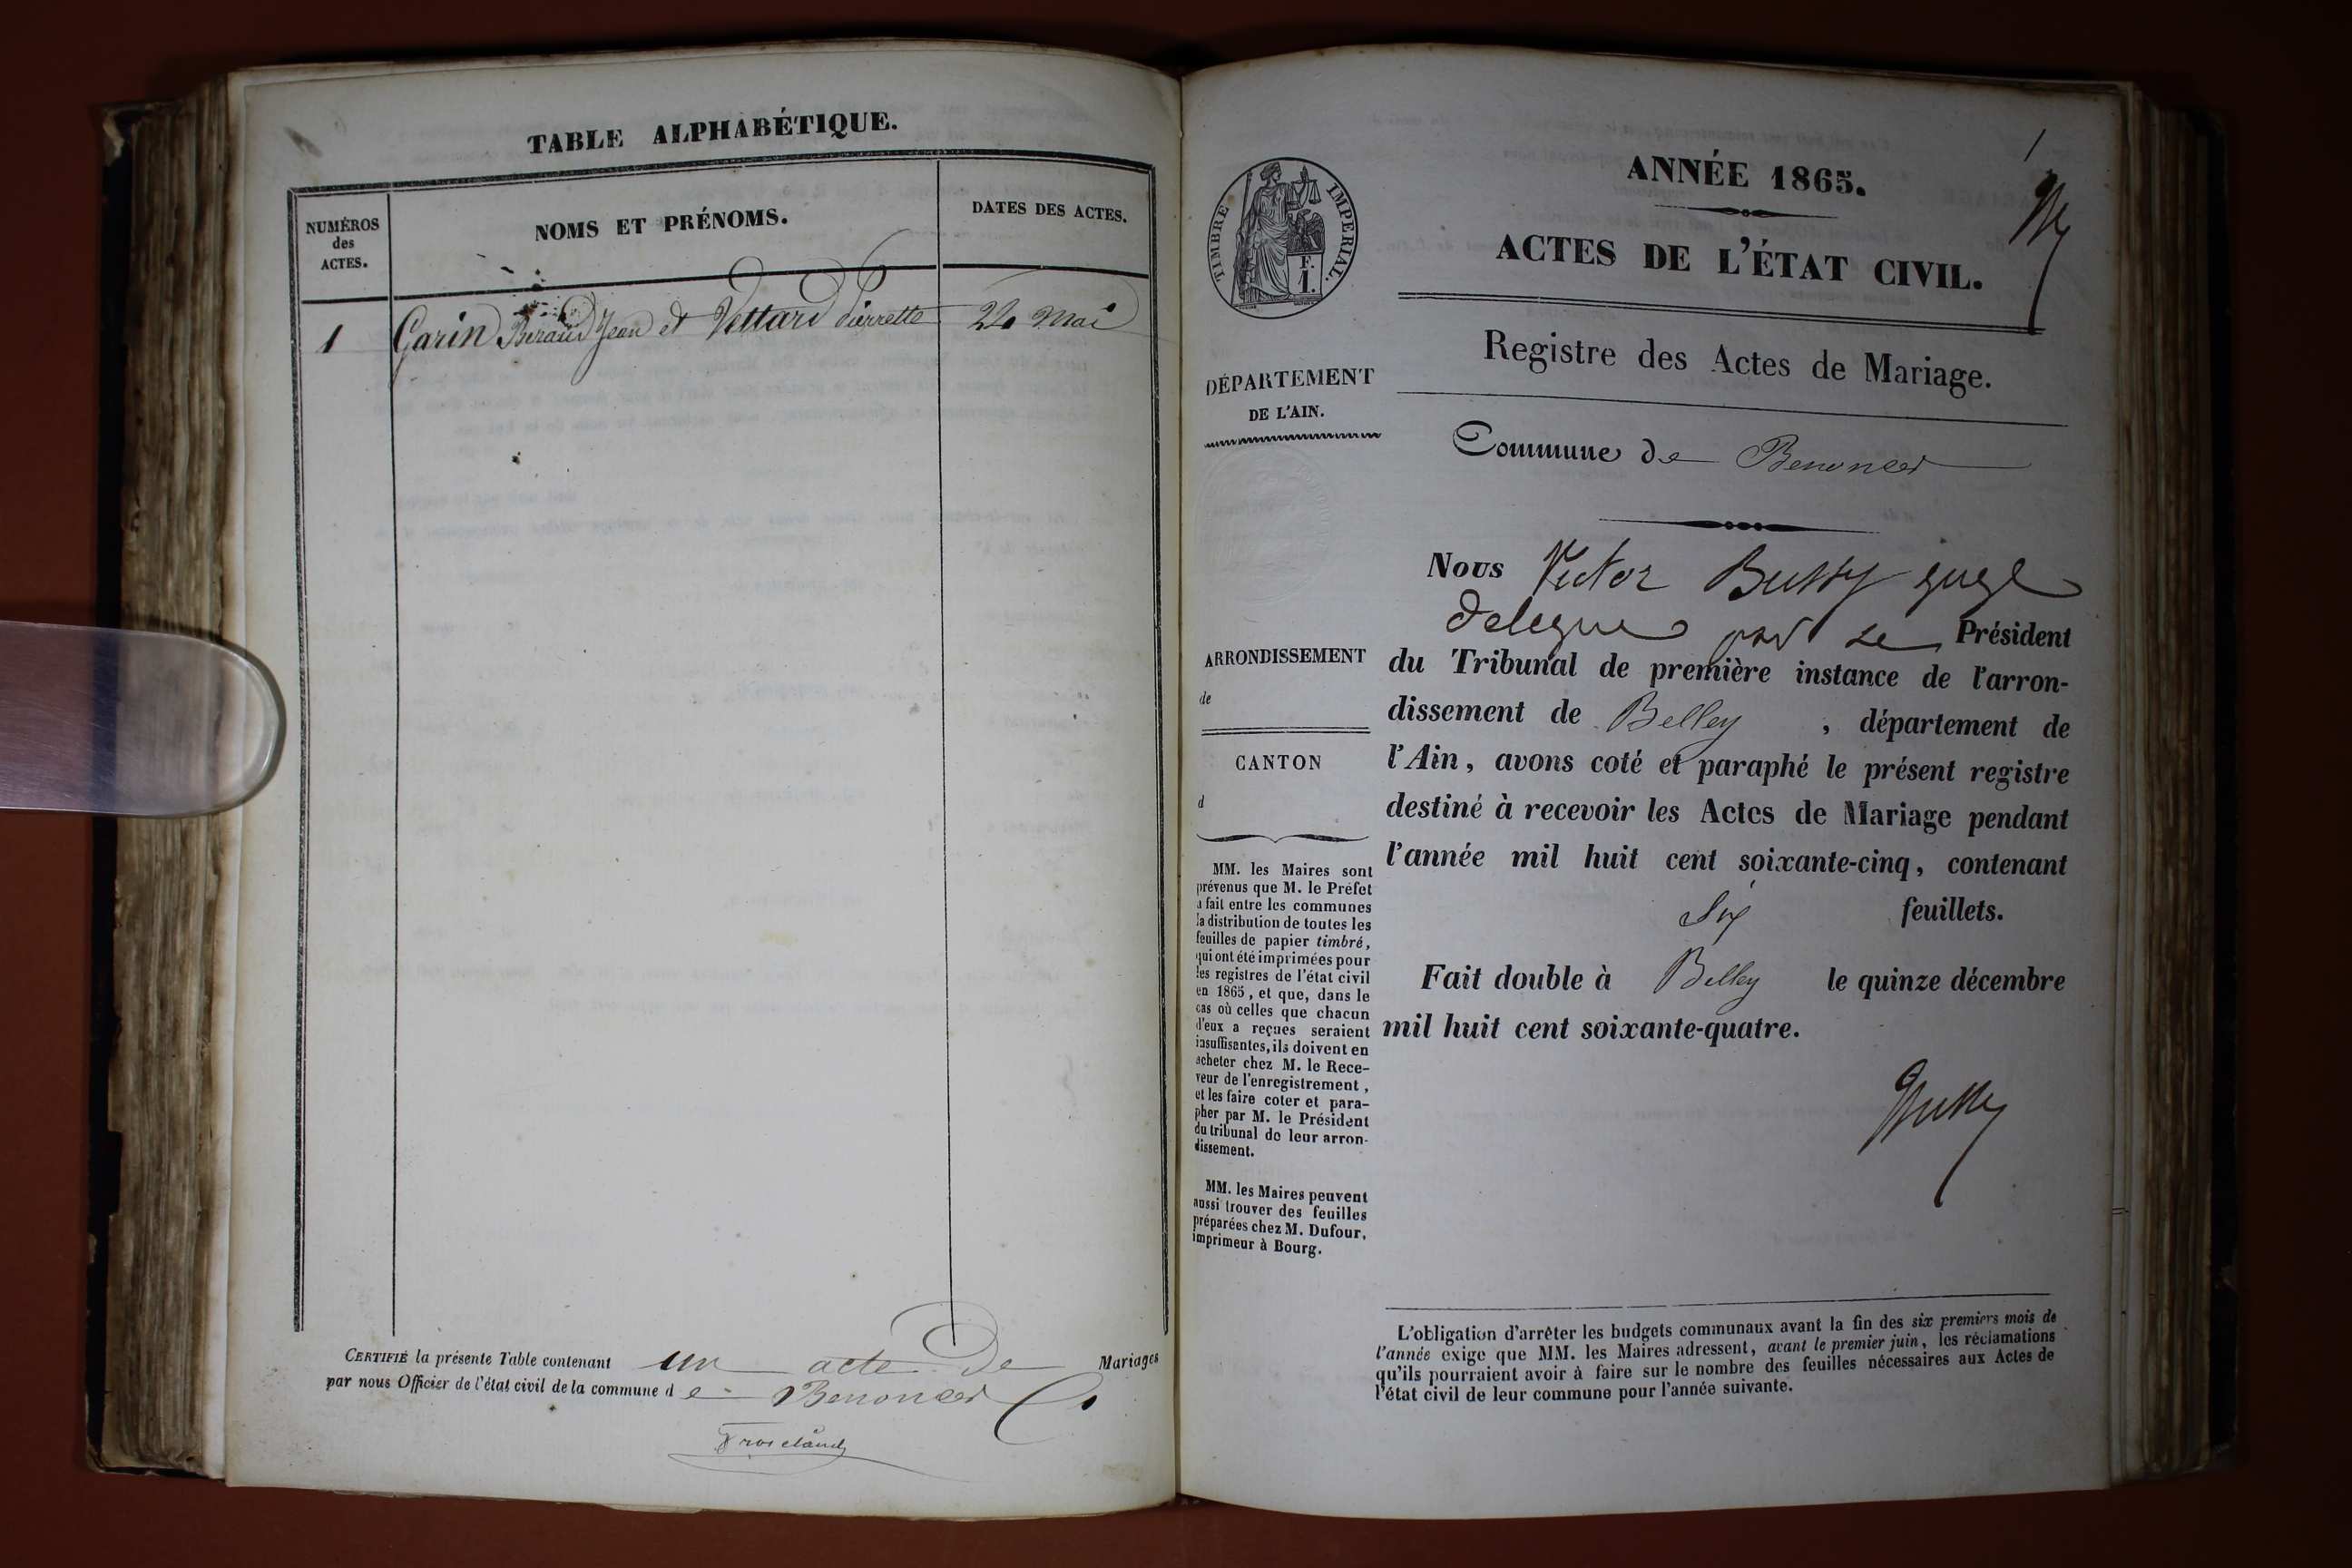 TABLE ALPHABÉTIQUE.
NUMÉROS
des
ACTES.
NOMS ET PRÉNOMS.
DATES DES ACTES.
1 Garin Beraud Jean et Vettard Pierrette 24 Mai
CERTIFIÉ la présente Table contenant un acte de Mariages
par nous Officier de l'état civil de la commune de Benonces
TIMBRE IMPERIAL.
F.
1.
DÉPARTEMENT
DE L'AIN.
ARRONDISSEMENT
de
CANTON
d
MM. les Maires sont
prévenus que M. le Préfet
a fait entre les communes
la distribution de toutes les
feuilles de papier timbré,
qui ont été imprimées pour
les registres de l'état civil
en 1865, et que, dans le
cas où celles que chacun
d'eux a reçues seraient
insuffisantes, ils doivent en
acheter chez M. le Rece-
veur de l'enregistrement,
et les faire coter et para-
pher par M. le Président
du tribunal de leur arron-
dissement.
MM. les Maires peuvent
aussi trouver des feuilles
préparées chez M. Dufour,
imprimeur à Bourg.
1
ANNÉE 1865.
ACTES DE L'ÉTAT CIVIL.
Registre des Actes de Mariage.
Commune de Benonces
Nous Victor Bussy juge
delegue par le Président
du Tribunal de première instance de l'arron-
dissement de Belley, département de
l'Ain, avons coté et paraphé le présent registre
destiné à recevoir les Actes de Mariage pendant
l'année mil huit cent soixante-cinq, contenant
Six feuillets.
Fait double à Belley le quinze décembre
mil huit cent soixante-quatre.
Bussy
L'obligation d'arrêter les budgets communaux avant la fin des six premiers mois de
l'année exige que MM. les Maires adressent, avant le premier juin, les réclamations
qu'ils pourraient avoir à faire sur le nombre des feuilles nécessaires aux Actes de
l'état civil de leur commune pour l'année suivante.